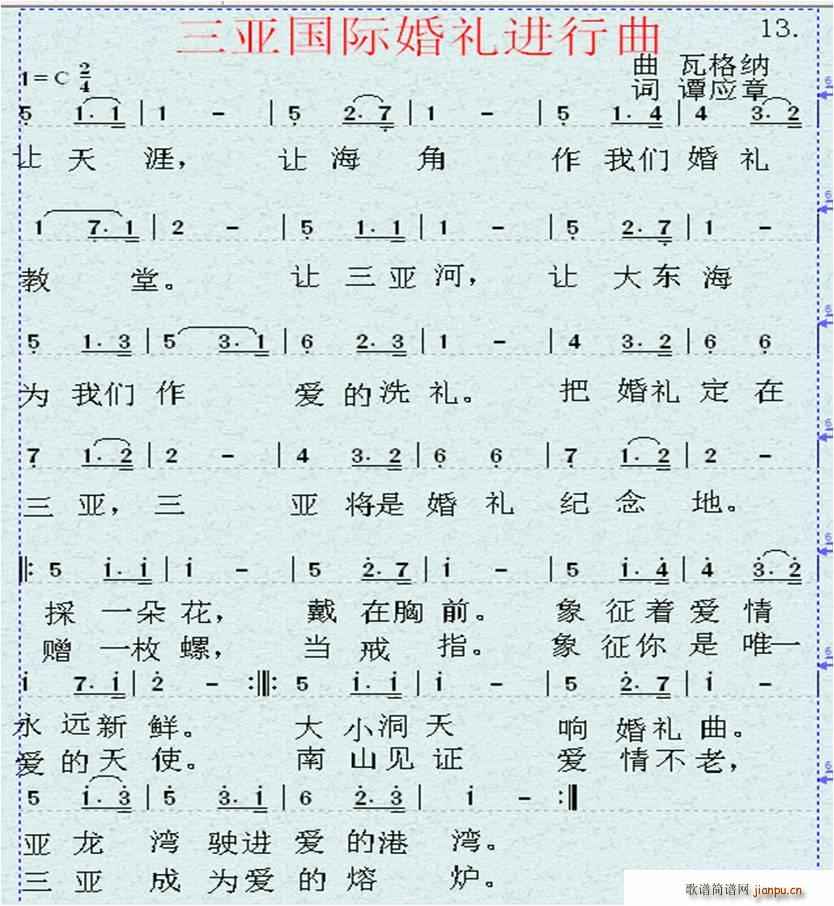 三亚国际婚礼进行曲
13.
1=C 2/4
曲 瓦格纳
词 谭应章
5 1. 1 | 1 - | 5 2. 7 | 1 - | 5 1. 4 | 4 3. 2
让 天 涯, 让 海 角 作 我 们 婚 礼
1 7. 1 | 2 - | 5 1. 1 | 1 - | 5 2. 7 | 1 -
教 堂。 让 三 亚 河, 让 大 东 海
5 1. 3 | 5 3. 1 | 6 2. 3 | 1 - | 4 3. 2 | 6 6
为 我 们 作 爱 的 洗 礼。 把 婚 礼 定 在
7 1. 2 | 2 - | 4 3. 2 | 6 6 | 7 1. 2 | 2 -
三 亚, 三 亚 将是 婚 礼 纪 念 地。
‖: 5 1. 1 | 1 - | 5 2. 7 | 1 - | 5 1. 4 | 4 3. 2
採 一朵 花, 戴 在胸 前。 象 征着 爱 情
赠 一枚 螺, 当 戒 指。 象 征你 是 唯一
1 7. 1 | 2 - :‖: 5 1. 1 | 1 - | 5 2. 7 | 1 -
永 远新 鲜。 大 小洞 天 响 婚礼 曲。
爱 的天 使。 南 山见 证 爱 情不 老,
5 1. 3 | 5 3. 1 | 6 2. 3 | 1 - :‖
亚 龙 湾 驶进 爱 的港 湾。
三 亚 成 为爱 的 熔 炉。
歌谱简谱网 jianpu.cn